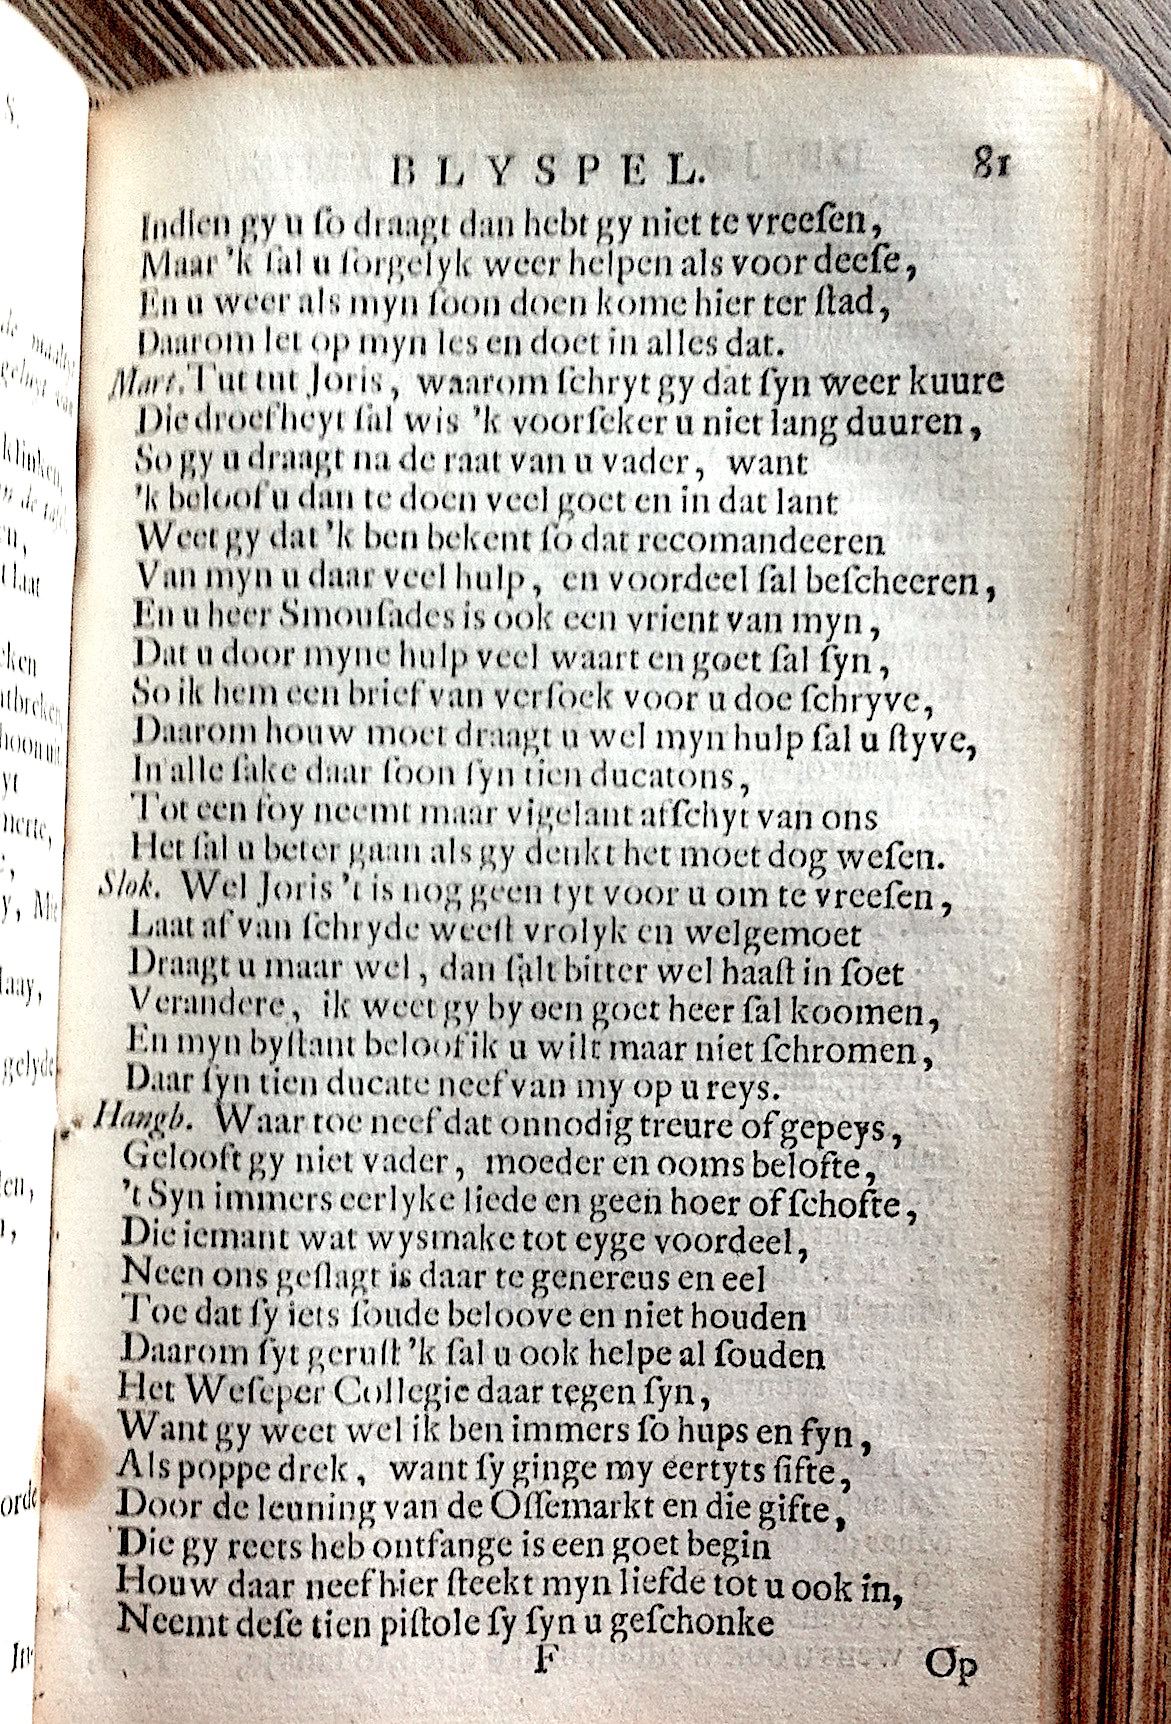 BLYSPEL. 81
Indien gy u ſo draagt dan hebt gy niet te vreeſen,
Maar 'k ſal u ſorgelyk weer helpen als voor deeſe,
En u weer als myn ſoon doen kome hier ter ſtad,
Daarom let op myn les en doet in alles dat.
Mart. Tut tut Joris, waarom ſchryt gy dat ſyn weer kuure
Die droefheyt ſal wis 'k voorſeker u niet lang duuren,
So gy u draagt na de raat van u vader, want
'k beloof u dan te doen veel goet en in dat lant
Weet gy dat 'k ben bekent ſo dat recomandeeren
Van myn u daar veel hulp, en voordeel ſal beſcheeren,
En u heer Smouſades is ook een vrient van myn,
Dat u door myne hulp veel waart en goet ſal ſyn,
So ik hem een brief van verſoek voor u doe ſchryve,
Daarom houw moet draagt u wel myn hulp ſal u ſtyve,
In alle ſake daar ſoon ſyn tien ducatons,
Tot een foy neemt maar vigelant afſchyt van ons
Het ſal u beter gaan als gy denkt het moet dog weſen.
Slok. Wel Joris 't is nog geen tyt voor u om te vreeſen,
Laat af van ſchryde weeſt vrolyk en welgemoet
Draagt u maar wel, dan ſalt bitter wel haaſt in ſoet
Verandere, ik weet gy by een goet heer ſal koomen,
En myn byſtant beloof ik u wilt maar niet ſchromen,
Daar ſyn tien ducate neef van my op u reys.
Hangb. Waar toe neef dat onnodig treure of gepeys,
Gelooft gy niet vader, moeder en ooms belofte,
't Syn immers eerlyke liede en geen hoer of ſchofte,
Die iemant wat wysmake tot eyge voordeel,
Neen ons geſlagt is daar te genereus en eel
Toe dat ſy iets ſoude beloove en niet houden
Daarom ſyt geruſt 'k ſal u ook helpe al ſouden
Het Weſeper Collegie daar tegen ſyn,
Want gy weet wel ik ben immers ſo hups en fyn,
Als poppe drek, want ſy ginge my eertyts ſifte,
Door de leuning van de Oſſemarkt en die gifte,
Die gy reets heb ontfange is een goet begin
Houw daar neef hier ſteekt myn liefde tot u ook in,
Neemt deſe tien piſtole ſy ſyn u geſchonke
F Op